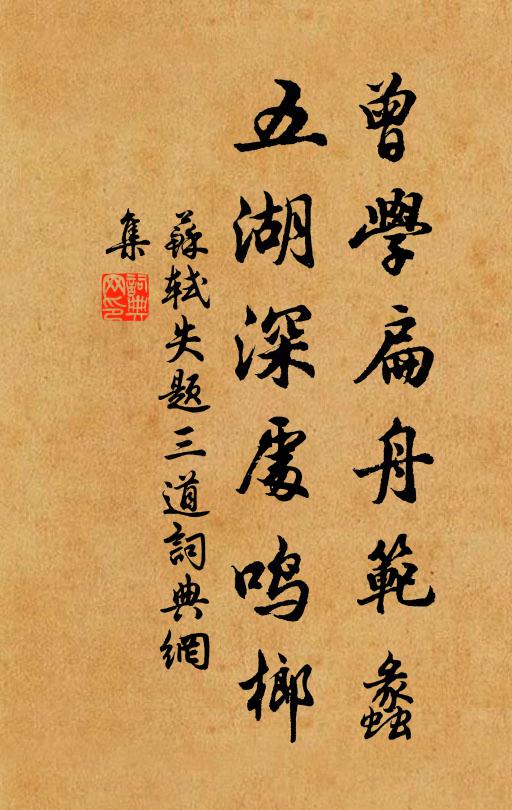 曾學扁舟範蠡
五湖深處鳴榔
蘇軾失题三道詞典網
集
詞典
网印